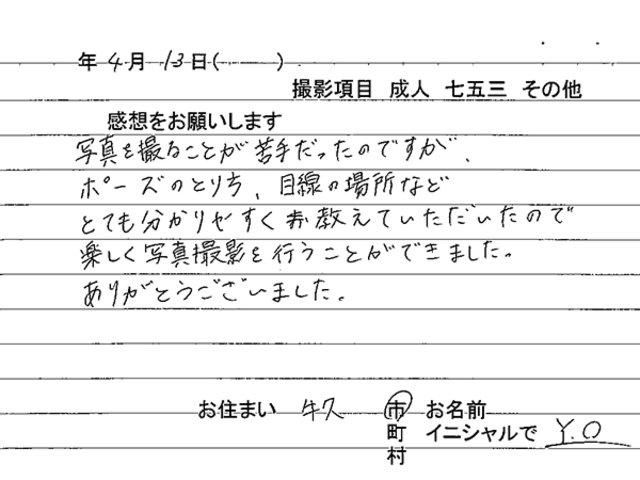 年 4月 13日(　　)
撮影項目 成人 七五三 その他
感想をお願いします
写真を撮ることが苦手だったのですが、
ポーズのとり方、目線の場所など
とても分かりやすくお教えていただいたので
楽しく写真撮影を行うことができました。
ありがとうございました。
お住まい 牛久 市 お名前
町 イニシャルで Y.O
村